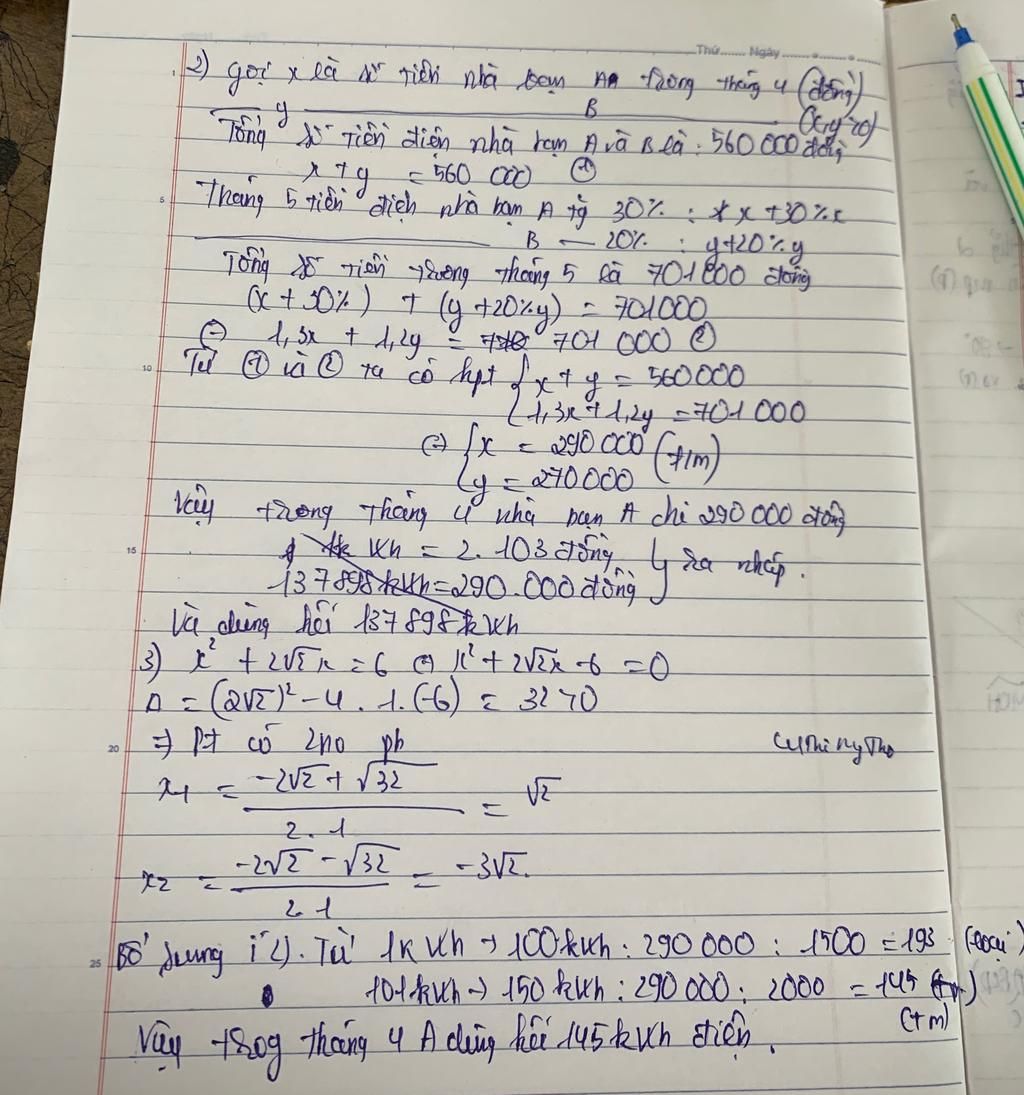 Thứ....... Ngày
2) gọi x là số tiền nhà bạn A trong tháng 4 (đồng)
y B (x,y>0)
Tổng số tiền điện nhà bạn A và B là : 560 000 đồng
x + y = 560 000 ①
5 Tháng 5 tiền điện nhà bạn A tg 30% : x + 30%x
B — 20% : y+20%y
Tổng số tiền trong tháng 5 là 701000 đồng
(x + 30%) + (y +20%y) = 701000
(=) 1,3x + 1,2y = 701 000 ②
10 Từ ① và ② ta có hpt { x + y = 560000
1,3x + 1,2y = 701 000
(=) { x = 290 000 (t/m)
y = 270000
Vậy trong tháng 4 nhà bạn A chi 290 000 đồng
15 kWh = 2.103 đồng } ra nháp.
137898 kWh = 290.000 đồng
Và dùng hết 137898 kWh
3) x² + 2√2x = 6 (=) x² + 2√2x - 6 = 0
Δ = (2√2)² - 4 . 1. (-6) = 32 > 0
20 => Pt có 2no pb
x1 = (-2√2 + √32) / (2.1) = √2
x2 = (-2√2 - √32) / (2.1) = -3√2.
25 Bổ sung í 2). Từ 1kWh → 100kWh : 290 000 : 1500 = 193 (loại)
101kWh → 150 kWh : 290 000 : 2000 = 145
(tm)
Vậy trog tháng 4 A dùng hết 145kWh điện.